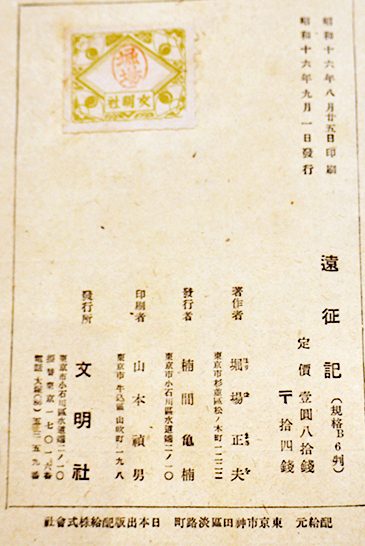 昭和十六年八月廿五日印刷
昭和十六年九月一日發行
堀場
文明社
遠征記
(規格B6判)
定價 壹圓八拾錢
〒 拾四錢
著作者
堀場正夫
ほり ば まさ を
東京市杉並區松ノ木町一二二二
發行者
楠間亀楠
東京市小石川區水道端二ノ一〇
印刷者
山本禎男
東京市牛込區山吹町一九八
發行所
文明社
東京市小石川區水道端二ノ一〇
振替東京一七〇一六番
電話大塚(86)五三五九番
配給元 東京市神田區淡路町 日本出版配給株式會社